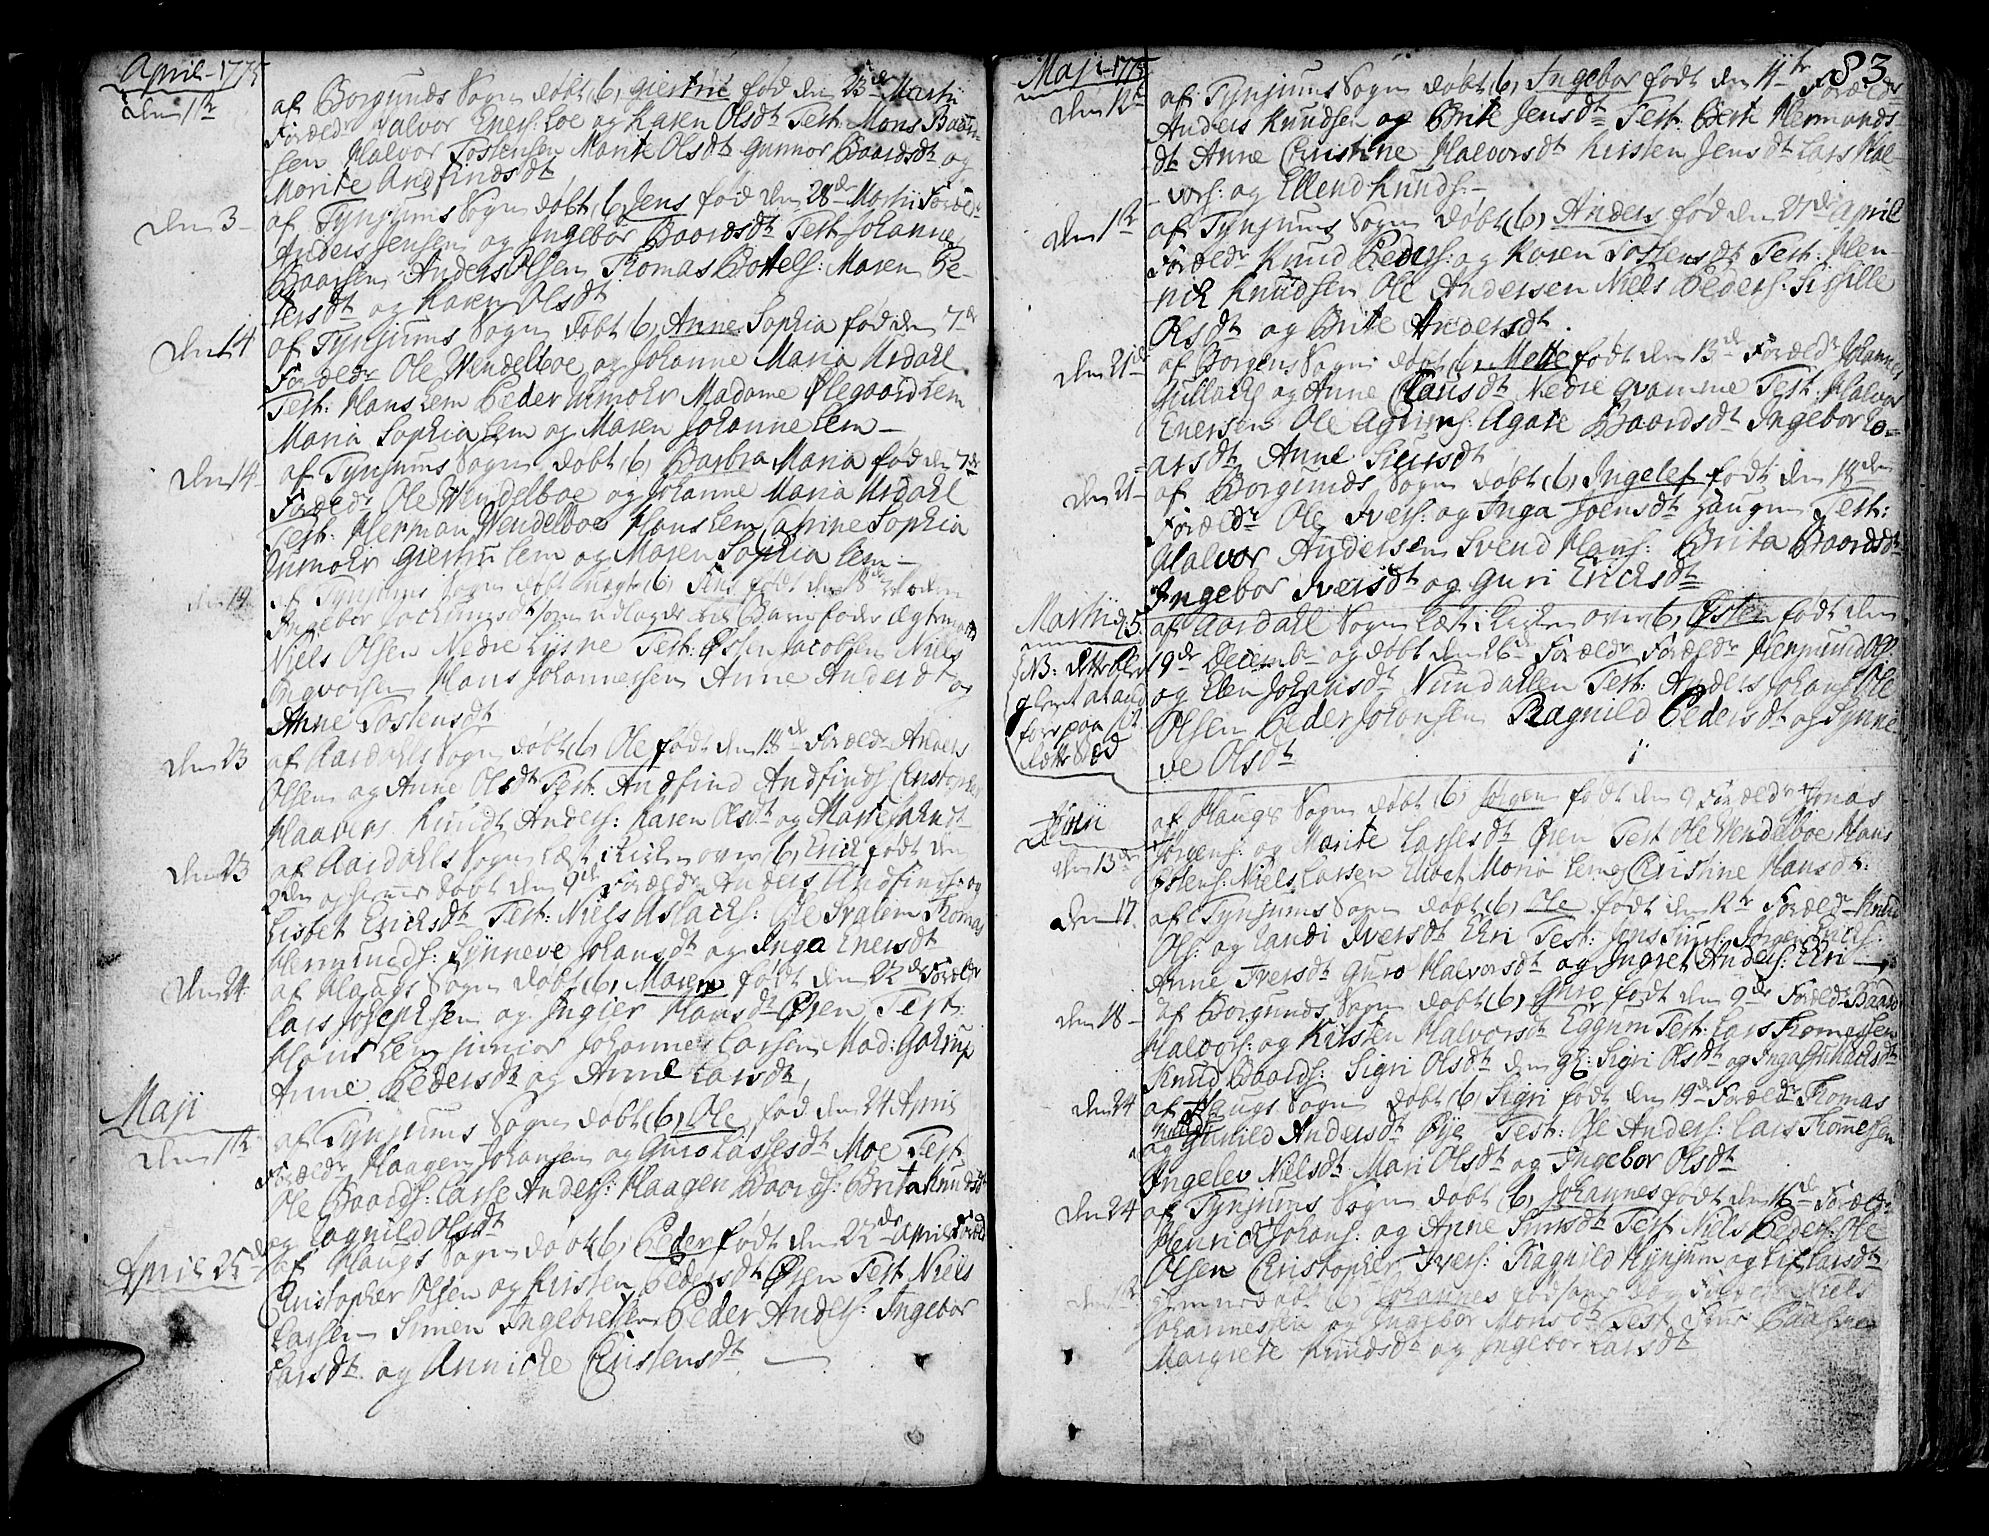 April 1775
den 1te
af Borgunds Sogn døbt (b) Giertrù fød den 23de Martii
Foreldr Halvor Eners: Loe og Karen Olsdt Test: Mons Baar-
sen Halvor Tostensen Marite Olsdt Gunnor Baardsdt og
Morite Andfindsdt
den 3
af Tynjums Sogn døbt (b) Jens fød den 28de Martii Foreldr
Anders Jensen og Ingebor Baardsdt Test: Johanne
Baarsen Anders Olsen Thomas Bottels: Maren Pe-
dersdt og Karen Olsdt
den 14
af Tynjums Sogn døbt (b) Anne Sophia fød den 7de
Foreldr Ole Wendelboe og Johanne Maria Urdahl
Test: Hans Lem Peder Mads Madame Ølegaard Lem
Maria Sophia Lem og Maren Johanne Lem
den 14
af Tynjums Sogn døbt (b) Barbra Maria fød den 7de
Foreldr Ole Wendelboe og Johanne Maria Urdahl
Test: Herman Wendelboe Hans Lem Catrine Sophia
Giertru Lem og Maren Sophia Lem
den 19
af Tynjums Sogn døbt (b) Jens fød den 18de Moder
Ingebor Jochumsdt som udlagde til Barnefader
Niels Olsen Nedre Lysne Test: Østen Jacobsen Niels
Ingvorsen Hans Johannessen Anne Andersdt og
Anne Tostensdt
den 23
af Aardahls Sogn døbt (b) Ole født den 18de Foreldr Anders
Olsen og Anne Olsdt Test: Andfind Andfinds: Christopher
Haavers: Knudt Anders: Karen Olsdt og
den 23
af Aardahls Sogn læst i Kirken over (b) Erick født den
døbt den 9de Foreldr Anders Andfinds: og
Lisbet Ericksdt Test: Niels Aslachs: Ole Svalem Thomas
Hermunds: Synneve Johansdt og Inga Enersdt
den 24
af Haugs Sogn døbt (b) Maren født den 22de Foreldr
Lars Josephsen og Ingier Hansdt Øren Test
Hans Lem junior Johannes Larsen Mad:
Anne Pedersdt og Anne Larsdt
Maji
den 1te
af Tynjums Sogn døbt (b) Ole fød den 24 April
Foreldr Haagen Johansen og Guro Lassesdt Moe Test:
Ole Baards: Lasse Anders: Haagen Baards: Brita Knudsdt
og Ragnild Olsdt
April 25de
af Haugs Sogn døbt (b) Peder født den 22de April Foreld
Christopher Olsen og Kirsten Pedersdt Øren Test Niels
Larsen Simen Ingebretsen Peder Anders: Ingebor
Larsdt og Annicke Christensdt
83
Maji 1775
den 12te
af Tynjums Sogn døbt (b) Ingebor født den 11te Foreldr
Anders Knudsen og Brite Jensdt Test: Berte Hermunds
dt Anne Christine Halvorsdt Kirsten Jensdt Lars Hal-
vors: og Ellend Knuds:
den 1te
af Tynjums Sogn døbt (b) Anders fød den 27de April
Foreldr Knud Peders: og Karen Tostensdt Test: Hen-
rich Knudsen Ole Andersen Niels Peders: Sissille
Olsdt og Brite Andersdt
den 21de
af Borgens Sogn døbt (b) Mette født den 13de Foreldr Johannes
Gullachs: og Anne Clausdt Nedre Qvamme Test: Halvor
Enersen Ole Agate Baardsdt Ingebor Lo-
arsdt Anne Siursdt
den 21
af Borgunds Sogn døbt (b) Ingelef født den 18den
Foreldr Ole Ivers: og Inga Joensdt Haugen Test:
Halvor Andersen Svend Hans: Brita Baardsdt
Ingebor Iversdt og Guri Ericksdt
Martii 25
af Aardahl Sogn læst i Kirken over (b) Østen født den
9de Decemb: og døbt den 26de Foreldr Hermund Ols:
og Elen Johansdt Nundahlen Test: Anders Johans: Ole
Olsen Peder Johansen Ragnild Pedersdt og Synne
ve Olsdt
NB: dette blev
glemt at and
føres paa
dette Sted
Junii
den 13de
af Haugs Sogn døbt (b) Jørgen født den 9 Foreldr Jonas
Jørgens: og Marite Lassesdt Øren Test Ole Wendelboe Hans
Niels Larsen Elbet Maria Lem og Christine Hansdt:
den 17
af Tynjums Sogn døbt (b) Ole født den 12te Foreldr Knud
Ols: og Randi Iversdt Eri Test: Jens Siurs:
Anne Iversdt Guro Halvorsdt og Ingret Anders: Eri
den 18
af Borgunds Sogn døbt (b) Guro født den 9de Foreldr Baard
Halvors: og Kirsten Halvorsdt Eggum Test: Lars Thomessen
Knud Baards: Sigri Olsdt den 9E: Sigri Olsdt og Inga Gullachsdt
den 24
af Haugs Sogn døbt (b) Sigri født den 19de Foreldr Thomas
Knuds:
og Gunild Andersdt Øye Test: Ole Anders: Lars Thomesen
Ingelev Nielsdt Mari Olsdt og Ingebor Olsdt
den 24
af Tynjums Sogn døbt (b) Johannes født den 16de Foreldr
Henrick Johans: og Anne Simsdt Test Niels Peders: Ole
Olsen Christopher Ivers: Ragnild Hynjum og Lisb: Larsdt
hjemmedøbt (b) Johannes fød samme Dag Foreldr Niels
Johannessen og Ingebor Monsdt Test
Margrete Knudsdt og Ingebor Larsdt